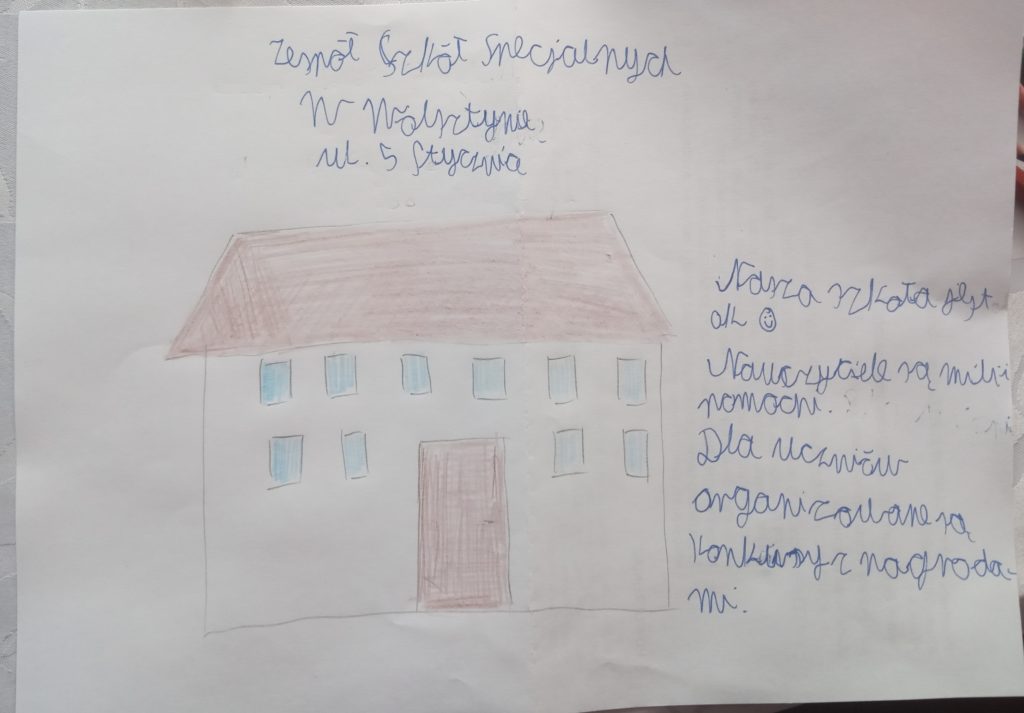 Zespół Szkół Specjalnych
W Wolsztynie
ul. 5 Stycznia
Nasza szkoła jest
ok ☺
Nauczyciele są mili i
pomocni.
Dla uczniów
organizowane są
konkursy z nagroda-
mi.